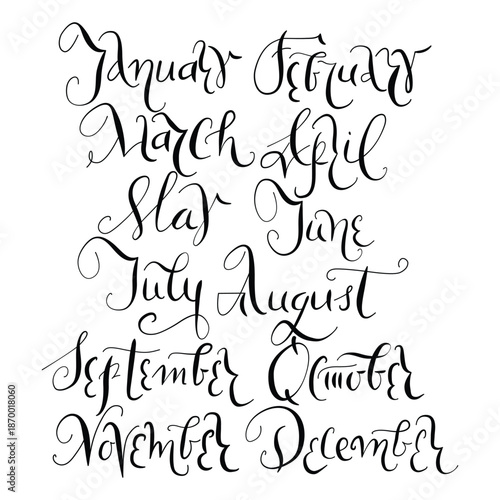 January February
March April
May June
July August
September October
November December
Adobe Stock | #1870018060